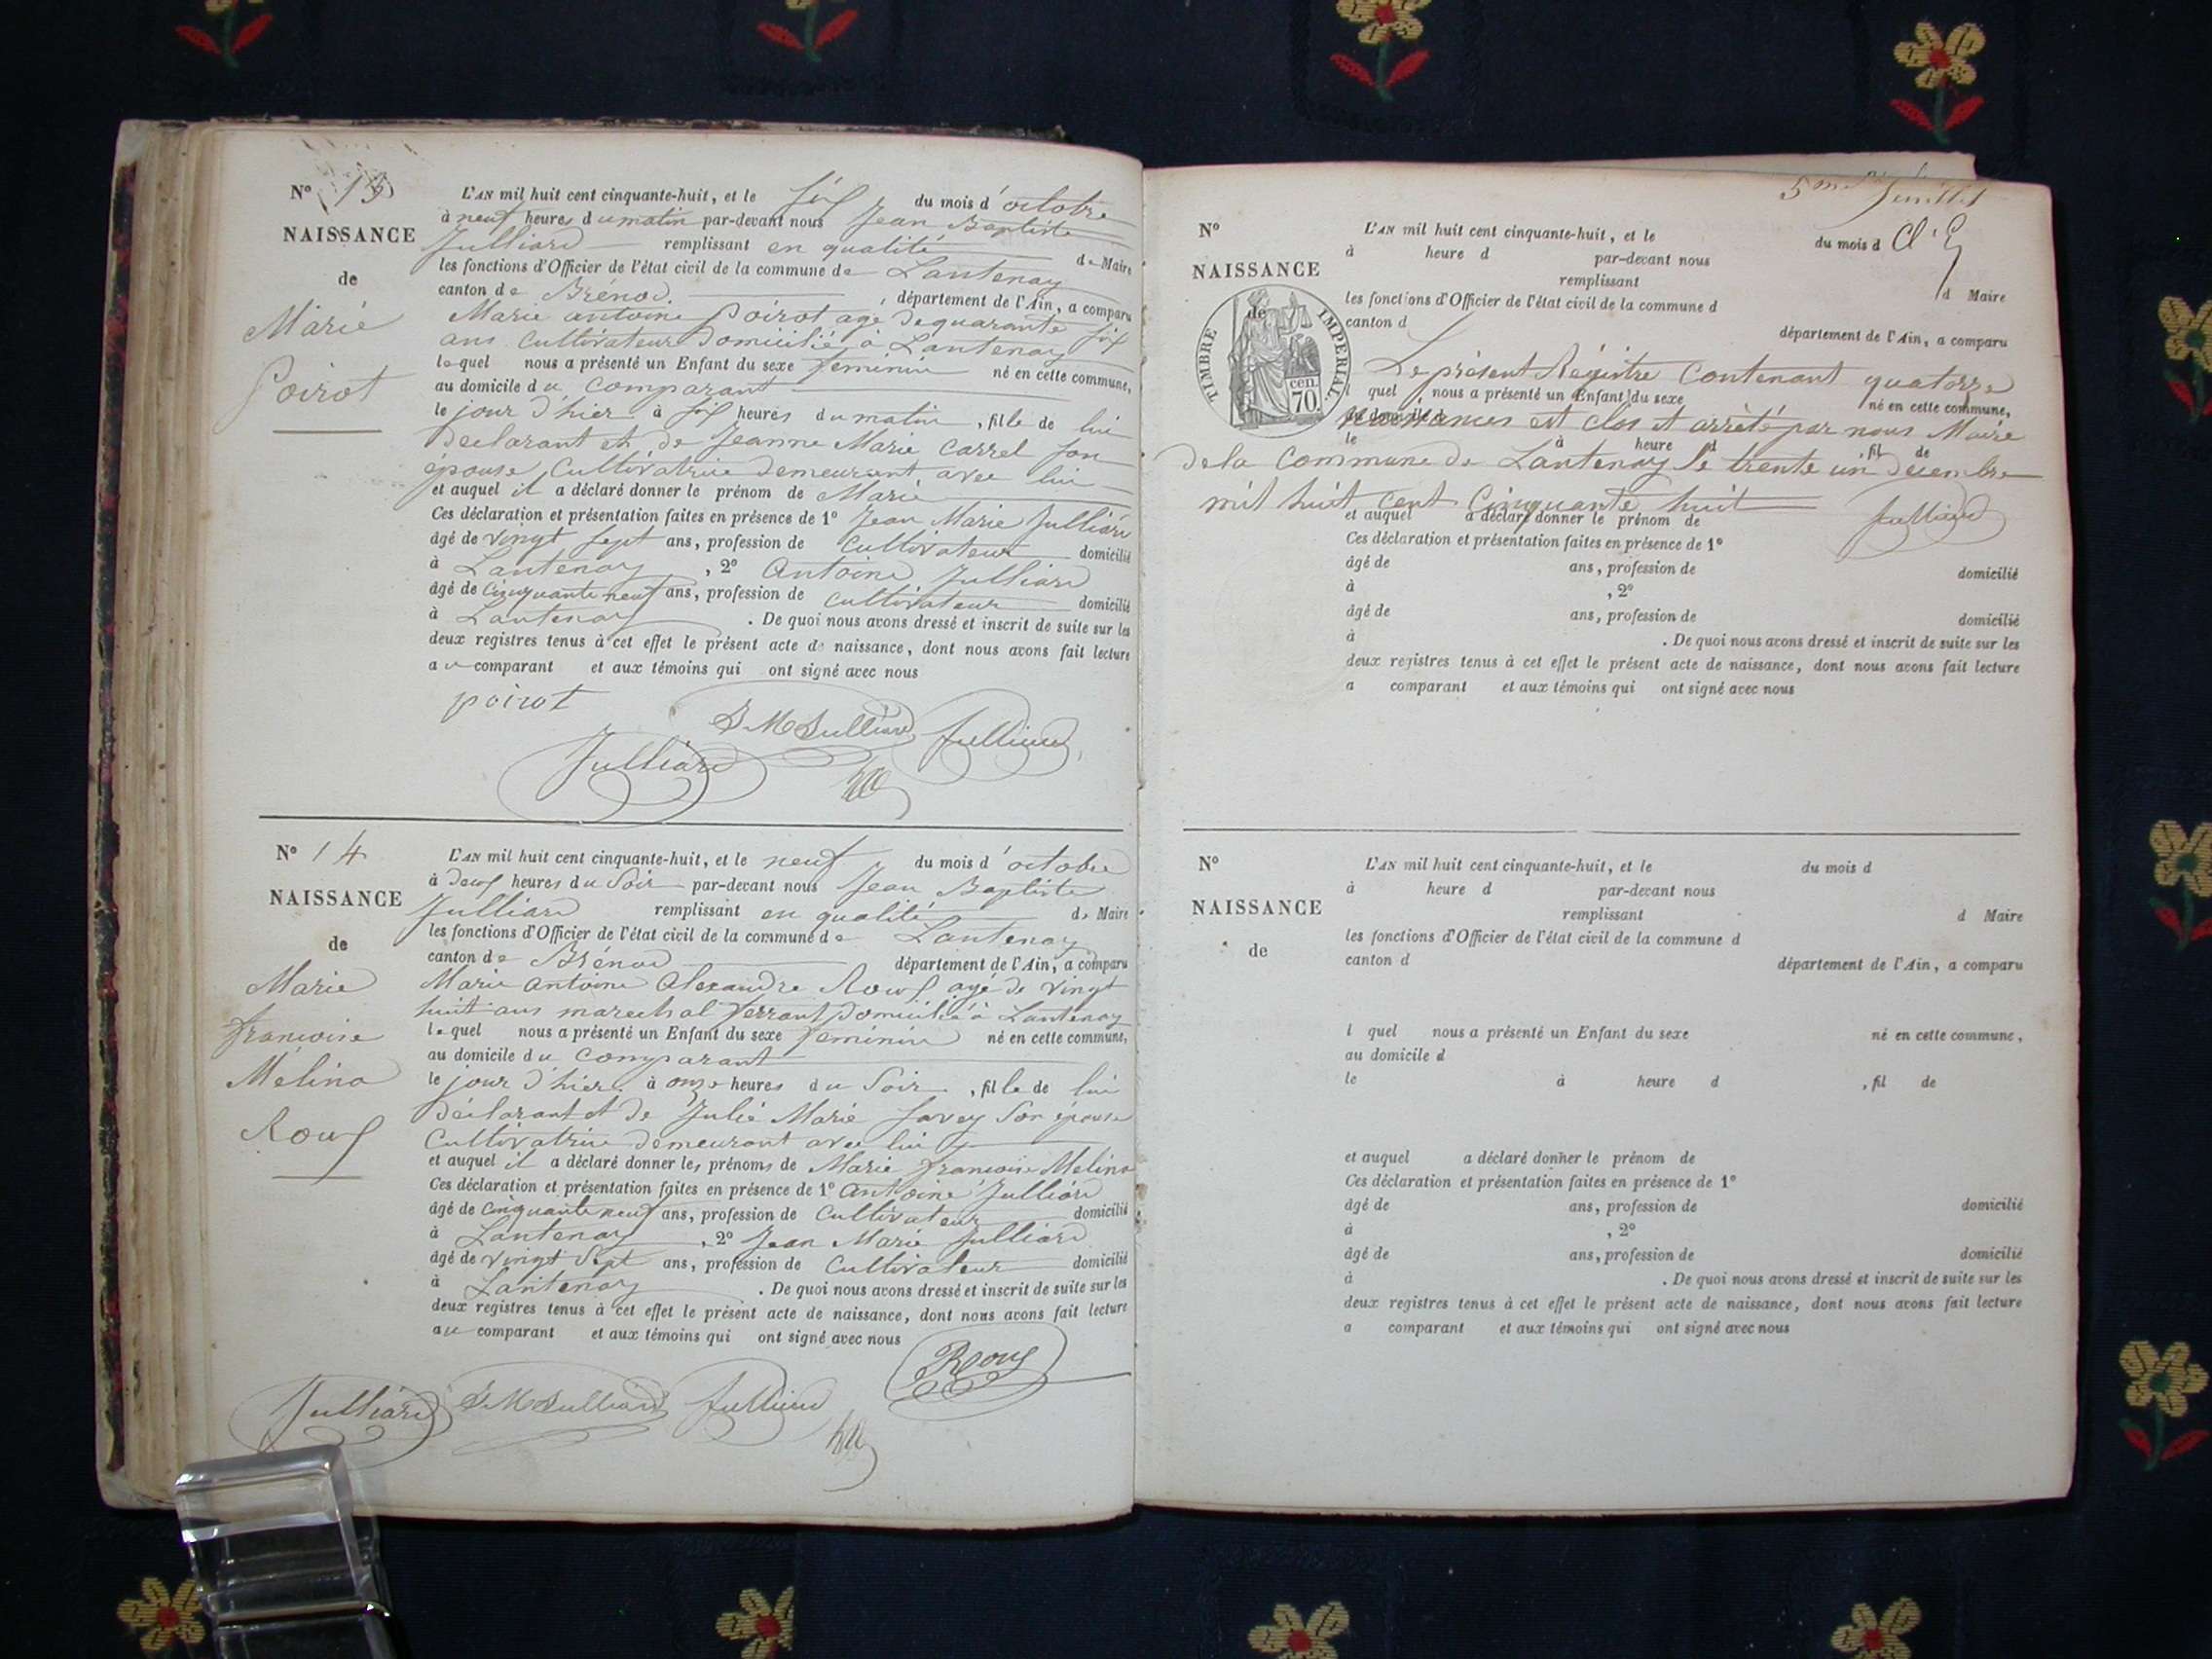 N° 13
NAISSANCE
de
Marie
Poirot
L'AN mil huit cent cinquante-huit, et le six du mois d'octobre
à neuf heures du matin par-devant nous Jean Baptiste
Julliard remplissant en qualité de Maire
les fonctions d'Officier de l'état civil de la commune de Lantenay
canton de Brénod, département de l'Ain, a comparu
Marie antoine Poirot age de quarante six
ans Cultivateur domicilié à Lantenay
lequel nous a présenté un Enfant du sexe feminin né en cette commune,
au domicile du comparant
le jour d'hier à six heures du matin, fille de lui
declarant et de Jeanne Marie Carrel son
épouse, Cultivatrice demeurant avec lui
et auquel il a déclaré donner le prénom de Marie
Ces déclaration et présentation faites en présence de 1° Jean Marie Julliard
âgé de vingt sept ans, profession de Cultivateur domicilié
à Lantenay, 2° Antoine Julliard
âgé de Cinquante neuf ans, profession de cultivateur domicilié
à Lantenay. De quoi nous avons dressé et inscrit de suite sur les
deux registres tenus à cet effet le présent acte de naissance, dont nous avons fait lecture
au comparant et aux témoins qui ont signé avec nous
poirot
J M Julliard Julliard
Julliard
N° 14
NAISSANCE
de
Marie
francoise
Mélina
Roux
L'AN mil huit cent cinquante-huit, et le neuf du mois d'octobre
à deux heures du Soir par-devant nous Jean Baptiste
Julliard remplissant en qualité de Maire
les fonctions d'Officier de l'état civil de la commune de Lantenay
canton de Brénod département de l'Ain, a comparu
Marie antoine Alexandre Roux agé de vingt
huit ans marechal ferrant domicilié à Lantenay
lequel nous a présenté un Enfant du sexe feminin né en cette commune,
au domicile du comparant
le jour d'hier à onze heures du Soir, fille de lui
déclarant et de Julie Marie Savey Son épouse
Cultivatrice demeurant avec lui
et auquel il a déclaré donner les prénoms de Marie francoise Melina
Ces déclaration et présentation faites en présence de 1° Antoine Julliard
âgé de Cinquante neuf ans, profession de Cultivateur domicilié
à Lantenay, 2° Jean Marie Julliard
âgé de vingt Sept ans, profession de Cultivateur domicilié
à Lantenay. De quoi nous avons dressé et inscrit de suite sur les
deux registres tenus à cet effet le présent acte de naissance, dont nous avons fait lecture
au comparant et aux témoins qui ont signé avec nous
Roux
Julliard J M Julliard Julliard
5me feuillet
N°
NAISSANCE
de
TIMBRE IMPERIAL
cen.
70
L'AN mil huit cent cinquante-huit, et le du mois d
à heure d par-devant nous
remplissant d Maire
les fonctions d'Officier de l'état civil de la commune d
canton d département de l'Ain, a comparu
Le présent Régistre Contenant quatorze
l quel nous a présenté un Enfant du sexe né en cette commune,
au domicile d
naissances est clos et arrêté par nous Maire
le à heure d fil de
de la Commune de Lantenay le trente un décembre
mil huit cent Cinquante huit
et auquel a déclaré donner le prénom de Julliard
Ces déclaration et présentation faites en présence de 1°
âgé de ans, profession de domicilié
à , 2°
âgé de ans, profession de domicilié
à . De quoi nous avons dressé et inscrit de suite sur les
deux registres tenus à cet effet le présent acte de naissance, dont nous avons fait lecture
a comparant et aux témoins qui ont signé avec nous
N°
NAISSANCE
de
L'AN mil huit cent cinquante-huit, et le du mois d
à heure d par-devant nous
remplissant d Maire
les fonctions d'Officier de l'état civil de la commune d
canton d département de l'Ain, a comparu
l quel nous a présenté un Enfant du sexe né en cette commune,
au domicile d
le à heure d , fil de
et auquel a déclaré donner le prénom de
Ces déclaration et présentation faites en présence de 1°
âgé de ans, profession de domicilié
à , 2°
âgé de ans, profession de domicilié
à . De quoi nous avons dressé et inscrit de suite sur les
deux registres tenus à cet effet le présent acte de naissance, dont nous avons fait lecture
a comparant et aux témoins qui ont signé avec nous